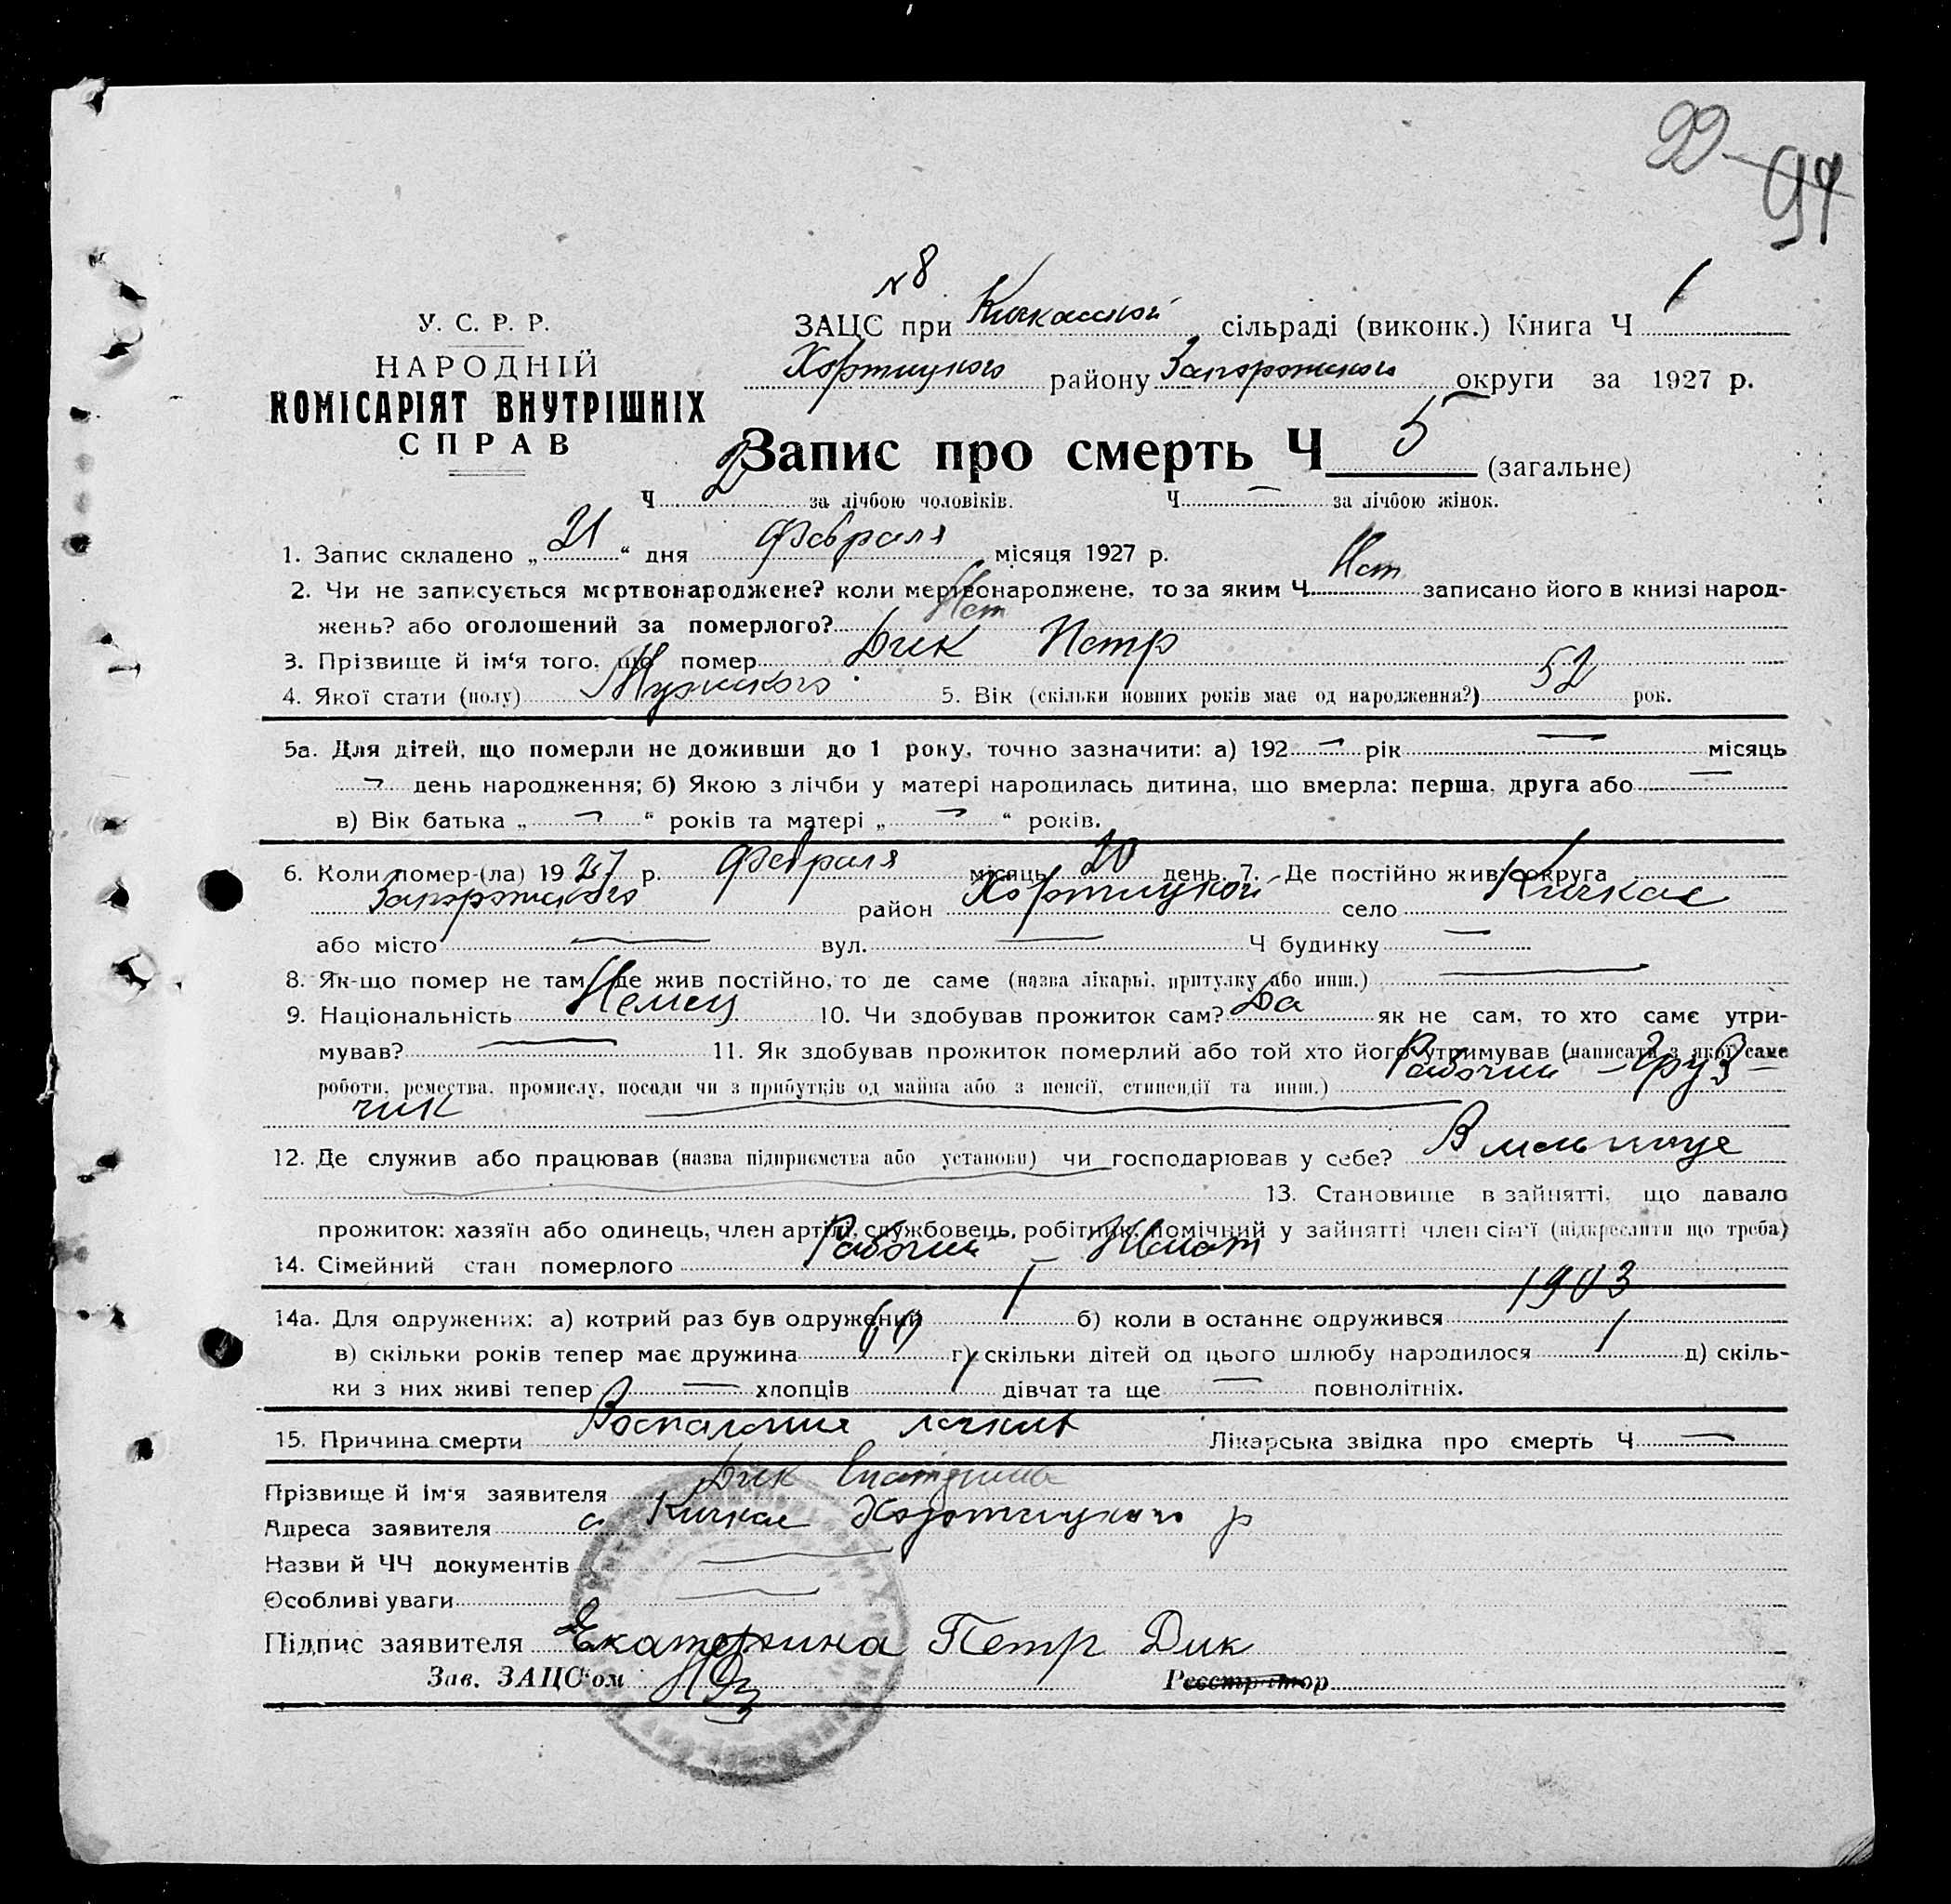 22 - 94
N 8
У. С. Р. Р.
НАРОДНІЙ
КОМІСАРІЯТ ВНУТРІШНІХ
СПРАВ
ЗАЦС при Кичкасской сільраді (виконк.) Книга Ч 1
Хортицкого району Запорожского округи за 1927 р.
Запис про смерть Ч 5 (загальне)
Ч 2 за лічбою чоловіків. Ч — за лічбою жінок.
1. Запис складено „21“ дня Февраля місяця 1927 р.
2. Чи не записується мертвонароджене? коли мертвонароджене, то за яким Ч Нет записано його в книзі народ-
жень? або оголошений за померлого? Нет
3. Прізвище й ім‘я того, що помер Дик Петр
4. Якої стати (полу) Мужского 5. Вік (скільки повних років має од народження?) 52 рок.
5а. Для дітей, що померли не доживши до 1 року, точно зазначити: а) 192 — рік — місяць
— день народження; б) Якою з лічби у матері народилась дитина, що вмерла: перша, друга або —
в) Вік батька „ — “ років та матері „ — “ років.
6. Коли помер-(ла) 1927 р. Февраля місяць 20 день. 7. Де постійно жив: округа
Запорожского район Хортицкой село Кичкас
або місто — вул. — Ч будинку —
8. Як-що помер не там, де жив постійно, то де саме (назва лікарні, притулку або инш.) —
9. Національність Немец 10. Чи здобував прожиток сам? Да як не сам, то хто саме утри-
мував? — 11. Як здобував прожиток померлий або той хто його утримував (написати з якої саме
роботи, ремества, промислу, посади чи з прибутків од майна або з пенсії, стипендії та инш.) Рабочий — Груз-
чик
12. Де служив або працював (назва підприємства або установи) чи господарював у себе? В мельнице
13. Становище в зайнятті, що давало
прожиток: хазяїн або одинець, член артілі, службовець, робітник, помічний у зайнятті член сім‘ї (підкреслити що треба)
Рабочий
14. Сімейний стан померлого Женат
14а. Для одружених: а) котрий раз був одружений 1 б) коли в останнє одружився 1903
в) скільки років тепер має дружина г) скільки дітей од цього шлюбу народилося 1 д) скіль-
ки з них живі тепер — хлопців 1 дівчат та ще — повнолітніх.
15. Причина смерти Воспаление легких Лікарська звідка про смерть Ч —
Прізвище й ім‘я заявителя Дик Екатерина
Адреса заявителя с Кичкас Хортицкого р
Назви й ЧЧ документів —
Особливі уваги —
Підпис заявителя Екатерина Петр Дик
Зав. ЗАЦС‘ом Реєстратор